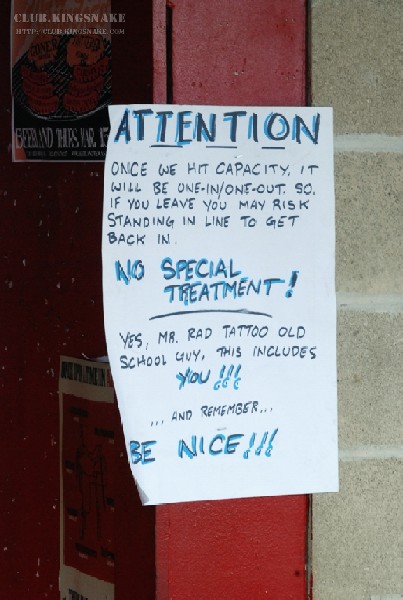 CLUB.KINGSNAKE
HTTP://CLUB.KINGSNAKE.COM
BEERLAND THURS MAR. 15
ATTENTION
ONCE WE HIT CAPACITY, IT
WILL BE ONE-IN/ONE-OUT. SO,
IF YOU LEAVE YOU MAY RISK
STANDING IN LINE TO GET
BACK IN.
NO SPECIAL
TREATMENT!
YES, MR. RAD TATTOO OLD
SCHOOL GUY, THIS INCLUDES
YOU!!!
... AND REMEMBER...
BE NICE!!!